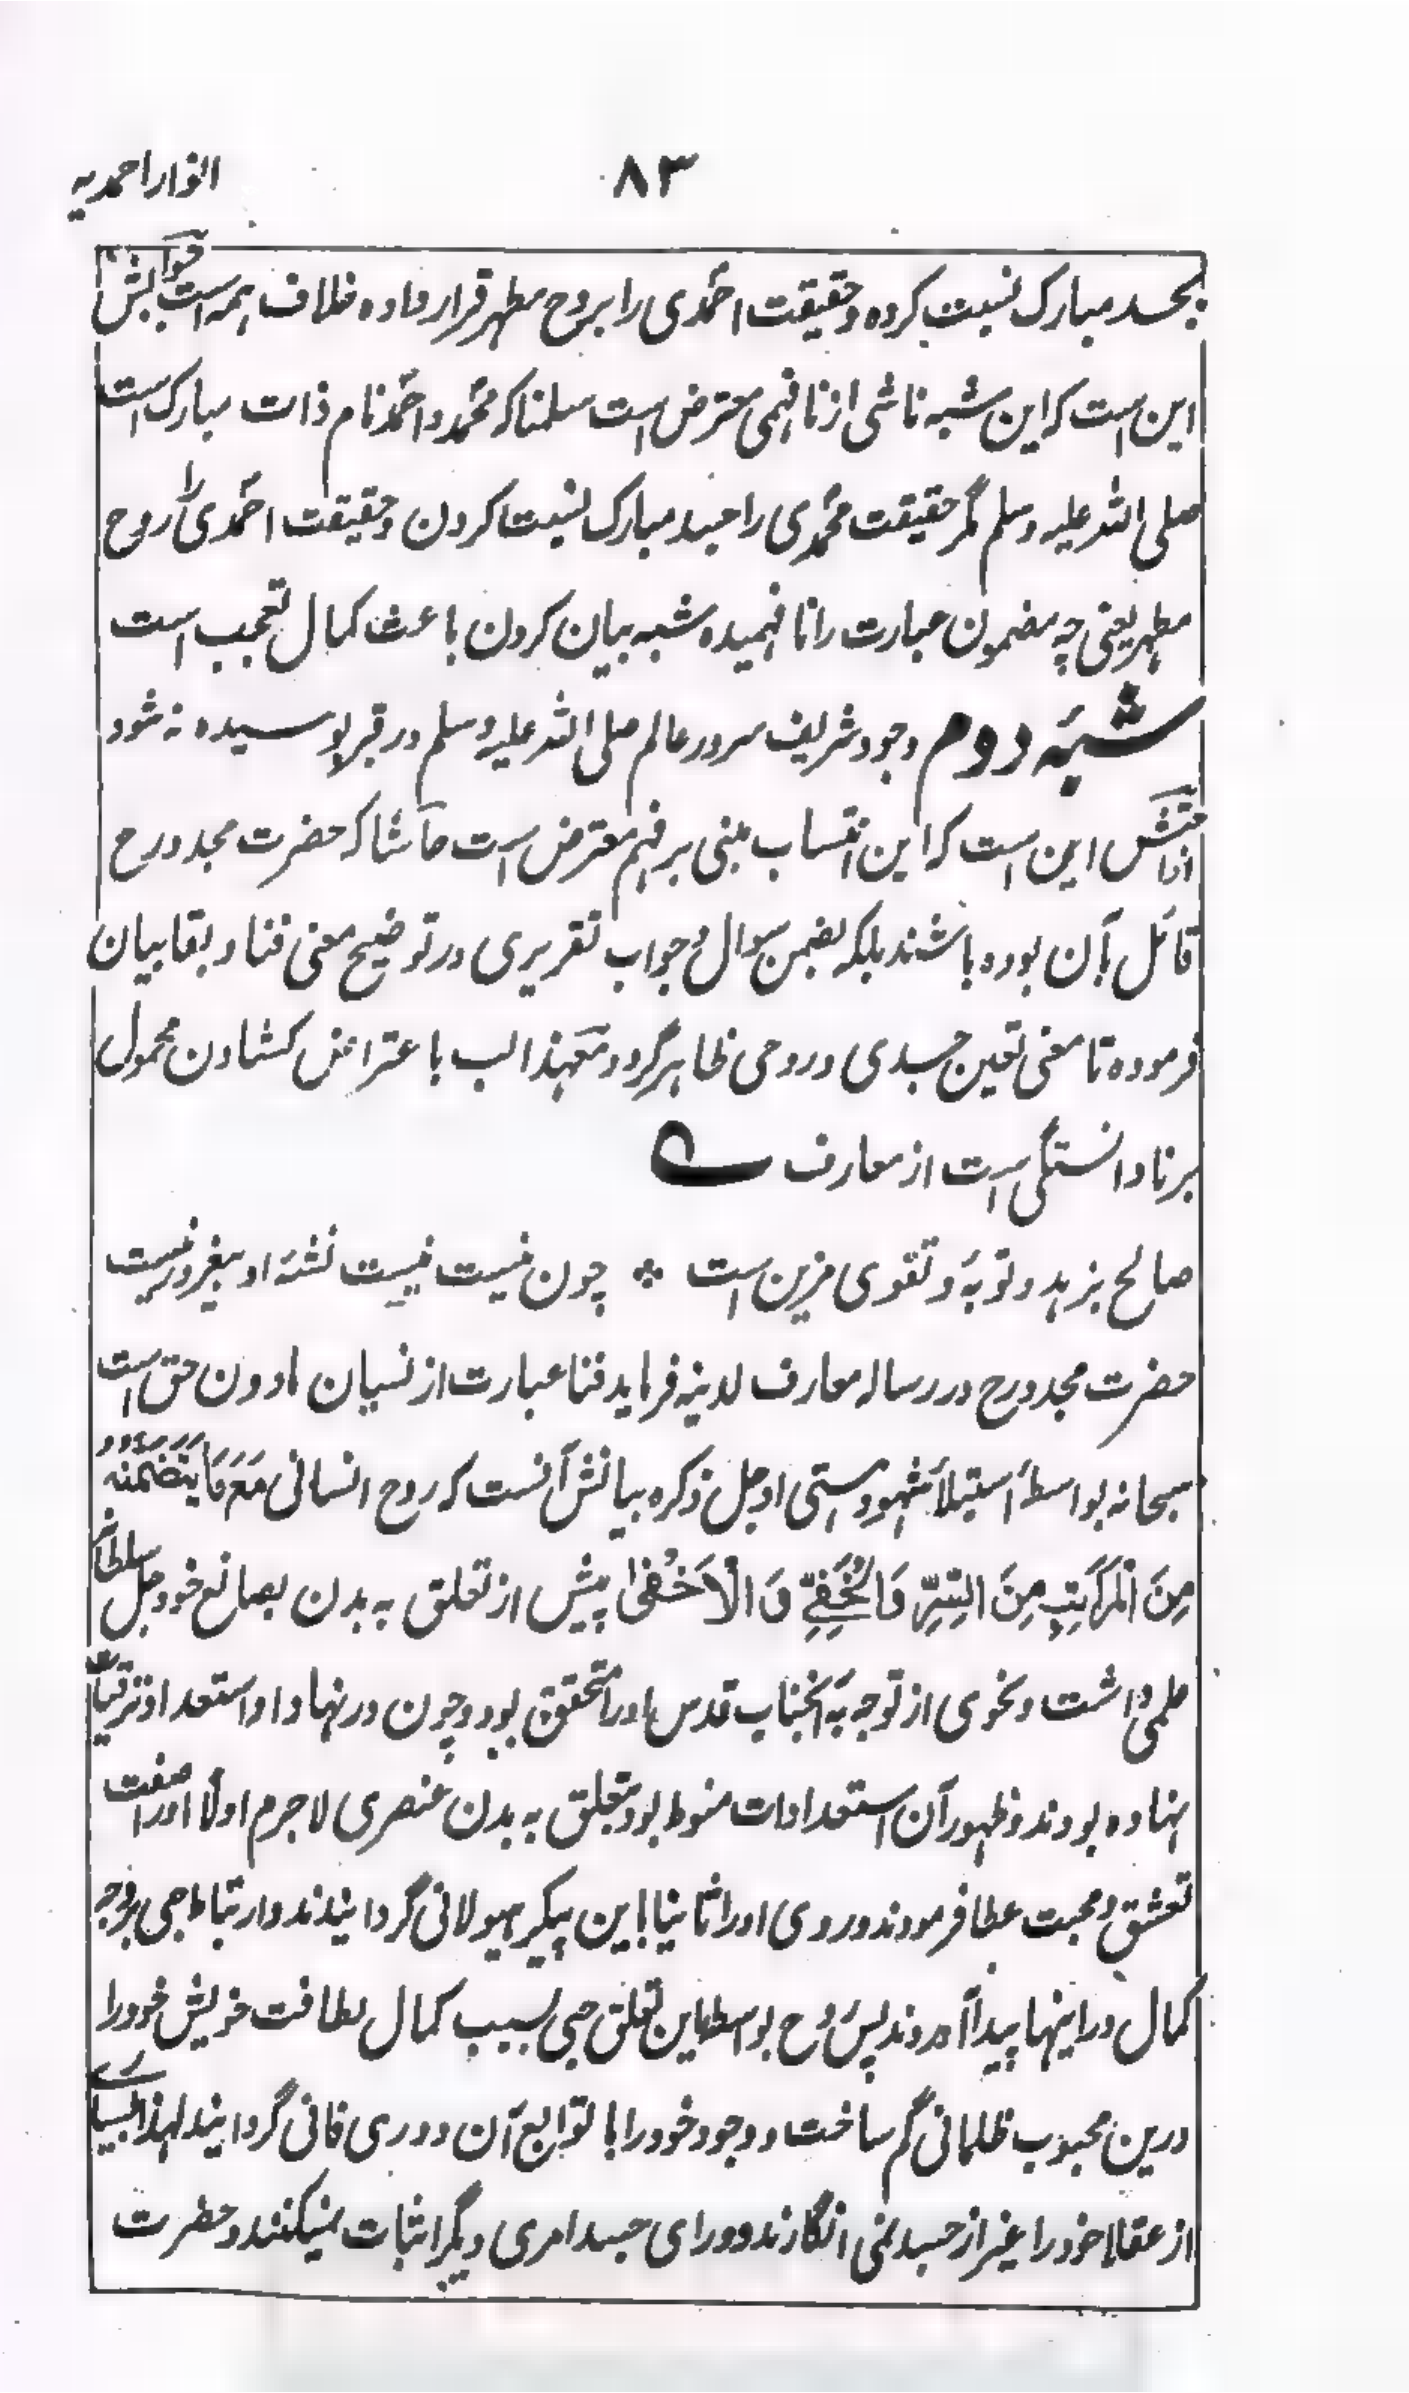 ۸۳
انوار احمدیہ
بجسد مبارک نسبت کرده و حقیقت احمّدی را بروح مطہر قرار داده خلاف ہمہ است جوابش
این است کہ این شبہ ناشی از نافہمی معترض است سلمنا کہ محمّد و احمّد نام ذات مبارک است
صلی اللہ علیہ وسلم مگر حقیقت محمّدی را بجسد مبارک نسبت کردن و حقیقت احمّدی را روح
مطہر یعنی چہ مضمون عبارت را نا فہمیده شبہ بیان کردن باعث کمال تعجب است
شبہۂ دوم وجود شریف سرور عالم صلی اللہ علیہ وسلم در قبر بوسیده نہ شود
این است کہ این انتساب مبنی بر فہم معترض است حاشا کہ حضرت مجدد رح
قائل بآن بوده باشند بلکہ بضمن سوال و جواب تقریری در توضیح معنی فنا و بقا بیان
فرموده تا معنی تعین جسدی و روحی ظاہر گردد و معہذا لب باعتراض کشادن محمول
بر نادانستگی است از معارف ؎
صالح بزہد و توبہ و تقوی مزین است ٭ چون نیست نیست نشئۂ او بیغرور نیست
حضرت مجدد رح در رسالہ معارف لدنیہ فرماید فنا عبارت از نسیان مادون حق است
سبحانہ بواسطۂ استیلاء شہود ہستی او جل ذکره بیانش آنست کہ روح انسانی مَعَ مَا یَتَضَمَّنُہٗ
مِنَ الْمَرَاتِبِ مِنَ السِّرِّ وَالْخَفِیِّ وَ الْاَخْفیٰ پیش از تعلق بہ بدن بصانع خود جل سلطانہ
علمی داشت و نحوی از توجہ بہ آنجناب قدس اورا متحقق بود و چون در نہاد او استعداد ترقیات
نہاده بودند و ظہور آن استعدادات منوط بود بتعلق بہ بدن عنصری لاجرم اولًا اورا صفت
تعشق و محبت عطا فرمودند و روی اورا ثانیا باین پیکر ہیولانی گردانیدند و ارتباط حبی بروجہ
کمال در اینہا پیدا آمدوند پس روح بواسطہ این تعلق حبی بسبب کمال لطافت خویش خود را
درین محبوب ظلمانی گم ساخت و وجود خود را با توابع آن در وی فانی گردانید لہذا بسیاری
از عقلا خود را غیر از جسد نمی انگارند و ورای جسد امری دیگر اثبات نمیکنند و حضرت